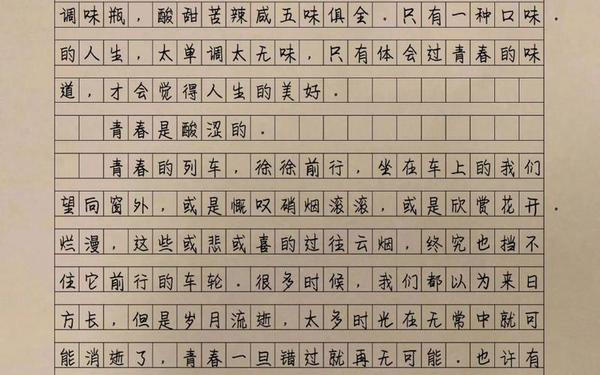 调味瓶，酸甜苦辣咸五味俱全．只有一种口味．
的人生，太单调太无味，只有体会过青春的味
道，才会觉得人生的美好．
青春是酸涩的．
青春的列车，徐徐前行，坐在车上的我们
望向窗外，或是慨叹硝烟滚滚，或是欣赏花开．
烂漫，这些或悲或喜的过往云烟，终究也挡不
住它前行的车轮．很多时候，我们都以为来日
方长，但是岁月流逝，太多时光在无常中就可
能消逝了，青春一旦错过就再无可能．也许有